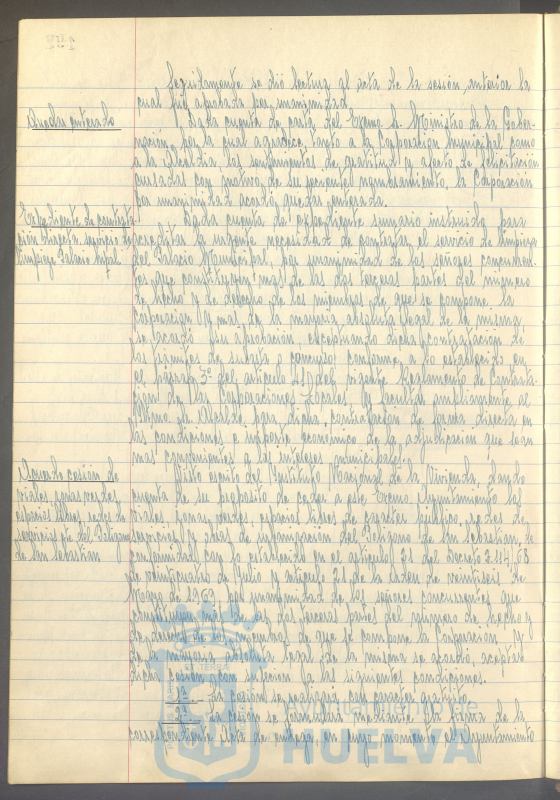 Seguidamente se dió lectura al acta de la sesión anterior la
cual fué aprobada por unanimidad.
Quedar enterado
Dada cuenta de carta del Excmo. Sr. Ministro de la Gober-
nación por la cual agradece tanto a la Corporación Municipal como
a la Alcaldía los sentimientos de gratitud y afecto de felicitación
cursadas con motivo de su reciente nombramiento, la Corporación
por unanimidad acordó quedar enterada.
Expediente de contrata-
ción directa servicio de
limpieza Palacio Mpal.
Dada cuenta de expediente sumario instruido para
acreditar la urgente necesidad de contratar el servicio de limpieza
del Palacio Municipal, por unanimidad de los señores concurren-
tes que constituyen más de las dos terceras partes del número
de hecho y de derecho de los miembros de que se compone la
Corporación y más de la mayoría absoluta legal de la misma,
se acordó su aprobación, exceptuando dicha contratación de
los trámites de subasta o concurso, conforme a lo establecido en
el párrafo 3º del artículo del vigente Reglamento de Contrata-
ción de las Corporaciones Locales y facultar ampliamente al
Iltmo. Sr. Alcalde para dicha contratación de forma directa en
las condiciones e importe económico de la adjudicación que sean
mas convenientes a los intereses municipales.
Acuerdo cesión de
viales, zonas verdes,
espacios libres, redes de
servicios, etc. del Polígono
de San Sebastián
Visto escrito del Instituto Nacional de la Vivienda, dando
cuenta de su propósito de ceder a este Excmo. Ayuntamiento los
viales, zonas verdes, espacios libres de carácter público, redes de
servicios y obras de urbanización del Polígono de San Sebastián, de
conformidad con lo establecido en el artículo 31 del Decreto 2.114/68
de veinticuatro de Julio y artículo 21 de la Orden de veintiseis de
Mayo de 1969 por unanimidad de los señores concurrentes que
constituyen más de las dos terceras partes del número de hecho y
de derecho de los miembros de que se compone la Corporación y
de la mayoría absoluta legal de la misma se acordó, aceptar
dicha cesión con sujeción a las siguientes condiciones.
La cesión se realizará con carácter gratuito.
La cesión se formulará mediante la firma de la
correspondiente Acta de entrega, en cuyo momento el Ayuntamiento
Ayuntamiento de
HUELVA